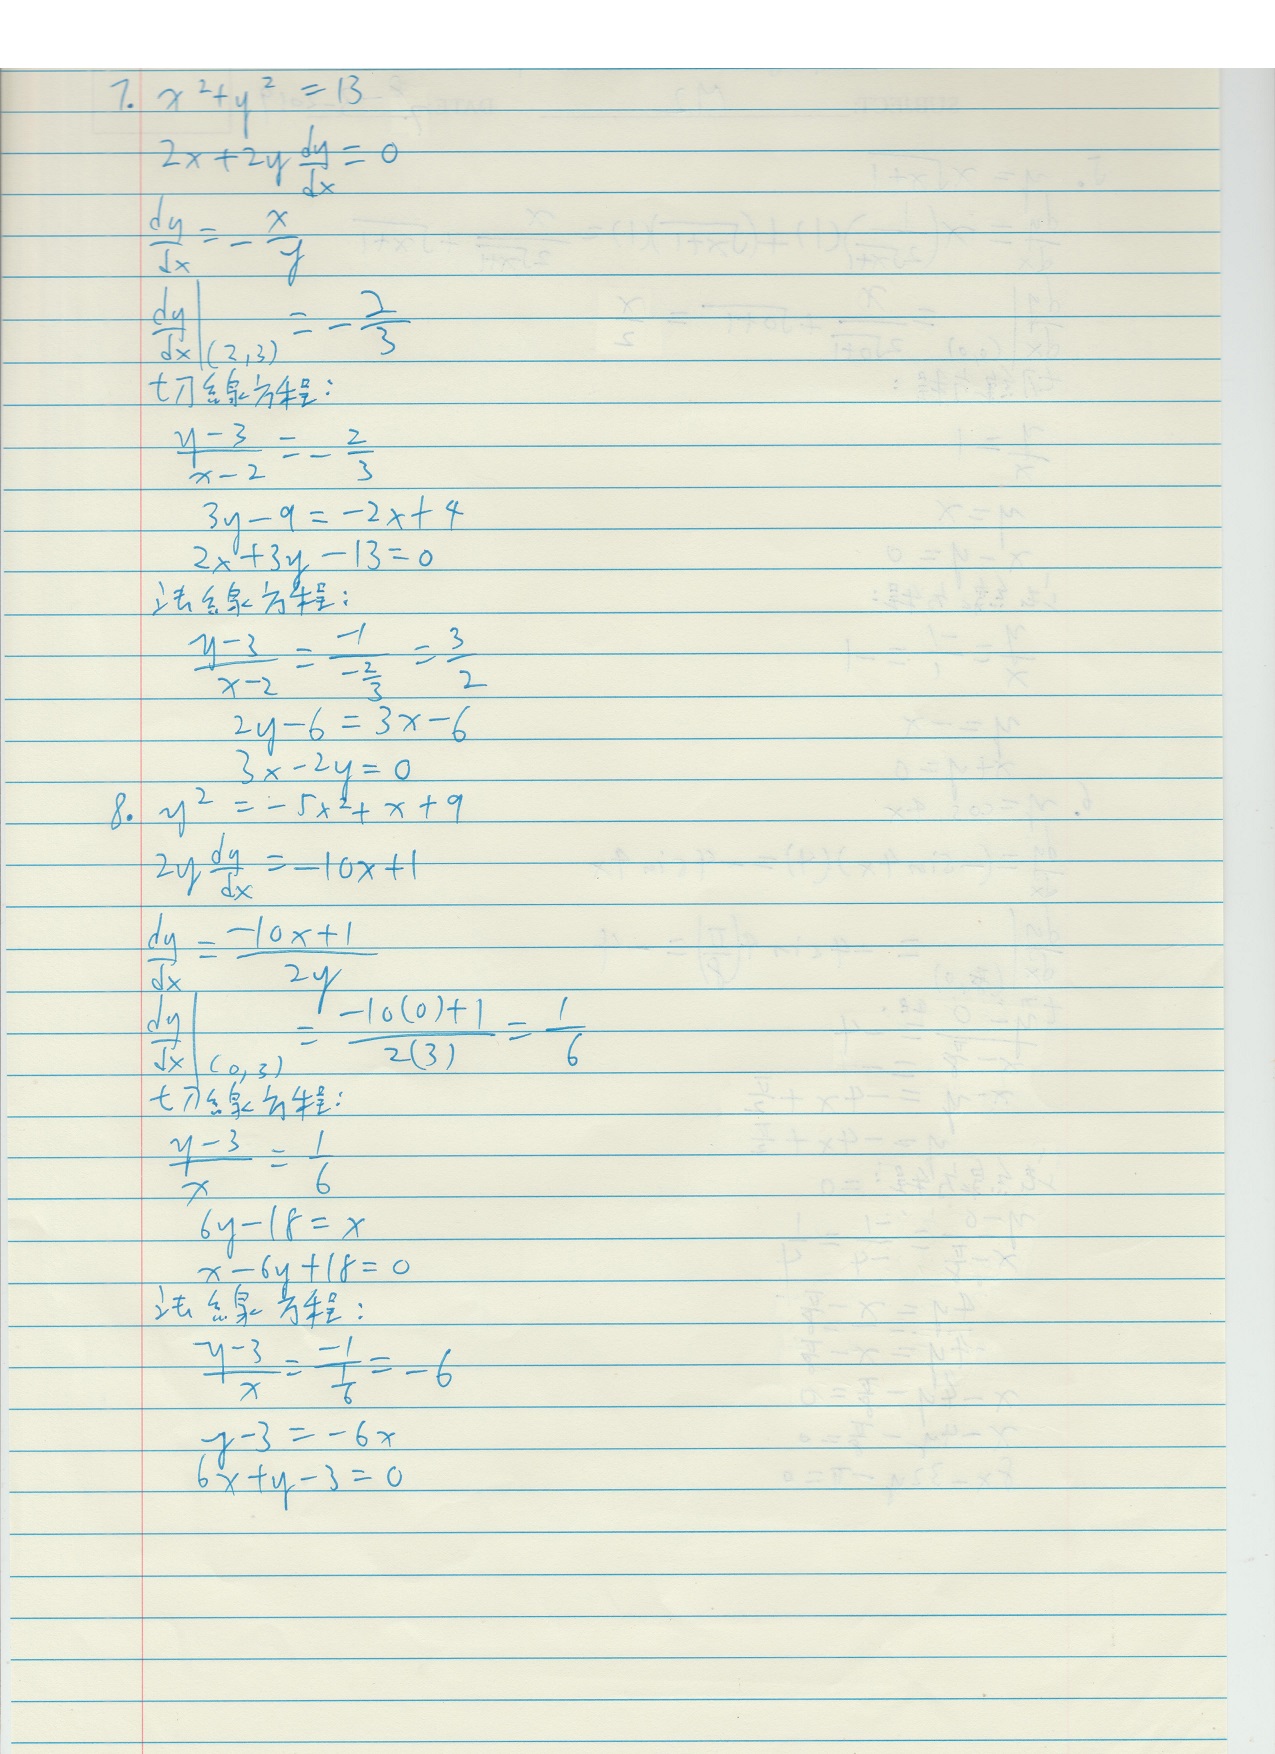 7. x²+y² = 13
2x+2y dy/dx = 0
dy/dx = - x/y
dy/dx|(2,3) = - 2/3
切線方程:
(y-3)/(x-2) = - 2/3
3y-9 = -2x+4
2x+3y-13=0
法線方程:
(y-3)/(x-2) = -1/(-2/3) = 3/2
2y-6 = 3x-6
3x-2y=0
8. y² = -5x²+x+9
2y dy/dx = -10x+1
dy/dx = (-10x+1)/2y
dy/dx|(0,3) = (-10(0)+1)/2(3) = 1/6
切線方程:
(y-3)/x = 1/6
6y-18 = x
x-6y+18=0
法線方程:
(y-3)/x = -1/(1/6) = -6
y-3 = -6x
6x+y-3=0